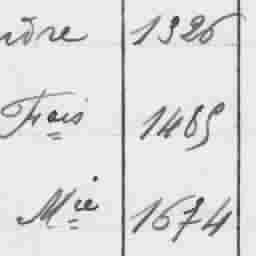 1326
Frois 1485
Mie 1674